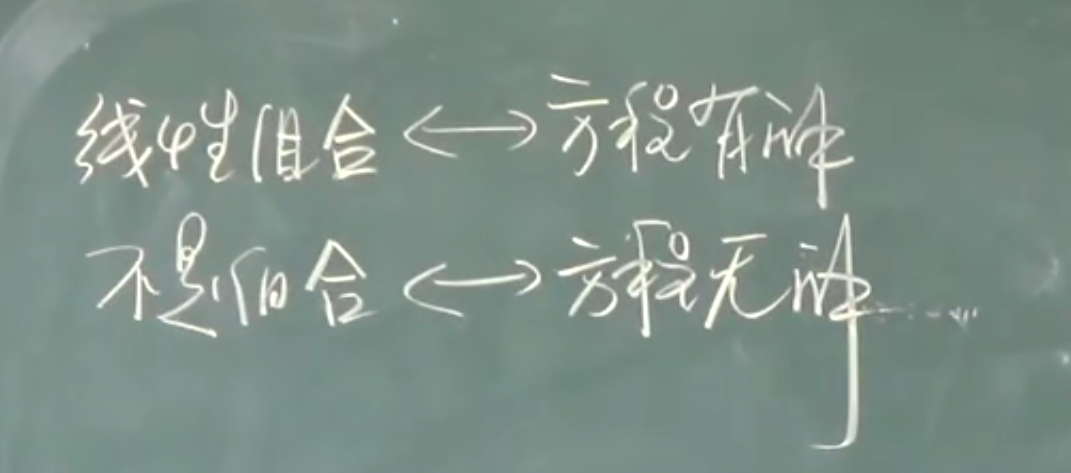 线性组合 ⟷ 方程有解
不是组合 ⟷ 方程无解